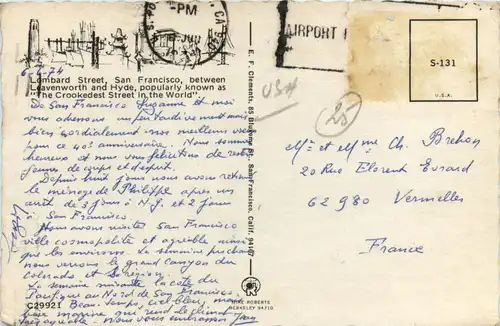 PM
CA 940
JUN
AIRPORT
6-7-74
Lombard Street, San Francisco, between
Leavenworth and Hyde, popularly known as
"The Crookedest Street in the World".
De San Francisco Suzanne et moi
vous adressons un peu tardivement mais
bien cordialement nos meilleurs vœux
pour ce 40e anniversaire. Nous sommes
heureux et nous vous félicitons de rester
jeunes de corps et d'esprit.
Depuis huit jours nous avons retrouvé
le ménage de Philippe après un
arrêt de 3 jours à N.Y. et 2 jours
à San Francisco.
Nous avons visité San Francisco
ville cosmopolite et agréable ainsi
que les environs. La semaine prochaine
nous verrons le grand canyon du
Colorado et sa région.
La semaine suivante la côte du
Pacifique au Nord de San Francisco.
Beau temps, ciel bleu,
qui rend le climat
Nous vous embrassons
C29921
MIKE ROBERTS
BERKELEY 94710
E. F. Clements, San Francisco, Calif. 94107
USA
25
S-131
U.S.A.
Mr et Mme Ch. Brehon
20 Rue Florent Evrard
62980 Vermelles
France